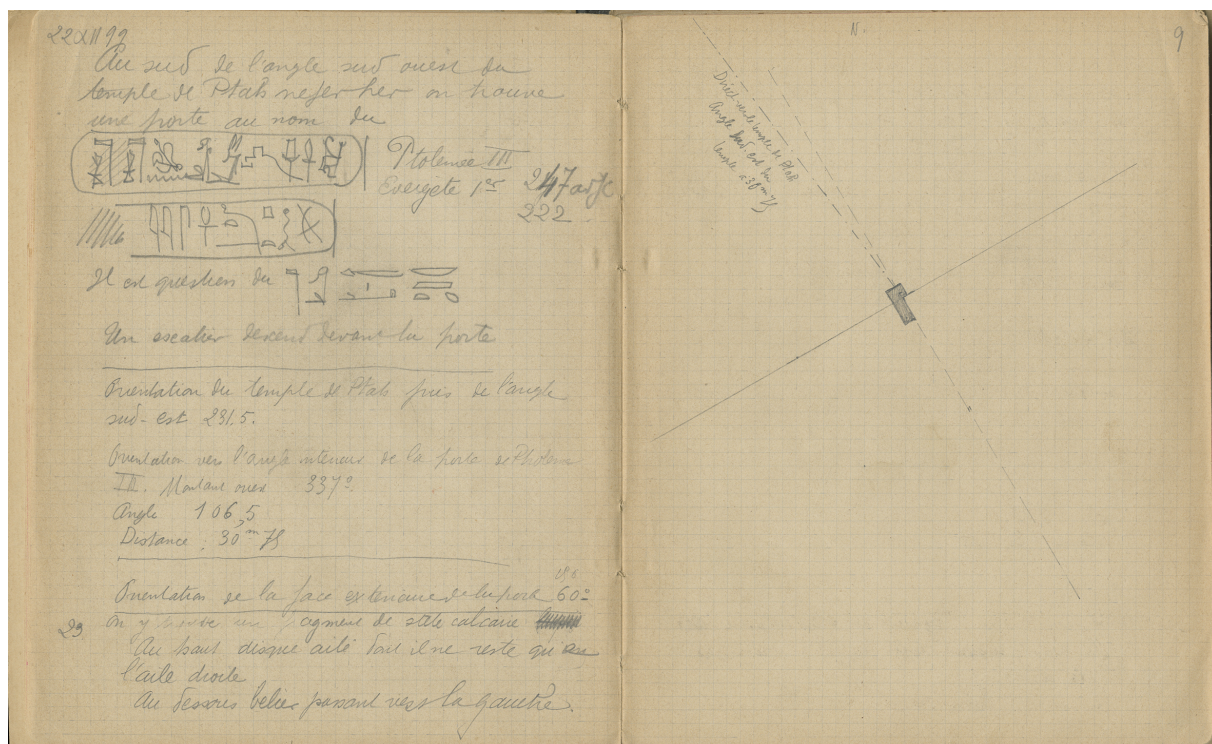 22 XII 99
Au sud de l'angle sud ouest du
temple de Ptah nefer her on trouve
une porte au nom du
Ptolemée III
Evergète 1er 247 av JC
222
Il est question du
Un escalier descend devant la porte
Orientation du temple de Ptah près de l'angle
sud-est 281.5.
Orientation vers l'angle interieur de la porte de Ptolem
III. Montant ouest 337°.
Angle 106,5
Distance : 30m 75
Orientation de la face exterieure de la porte 60°
23 on y trouve un fragment de stèle calcaire
Au haut disque ailé dont il ne reste que
l'aile droite
Au dessous belier passant vers la gauche.
N.
9
temple de Ptah
Angle sud-est du
temple à 30m 75